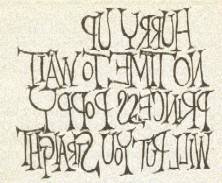 HURRY UP
NO TIME TO WAIT
PRINCESS POPPY
WILL PUT YOU STRAIGHT